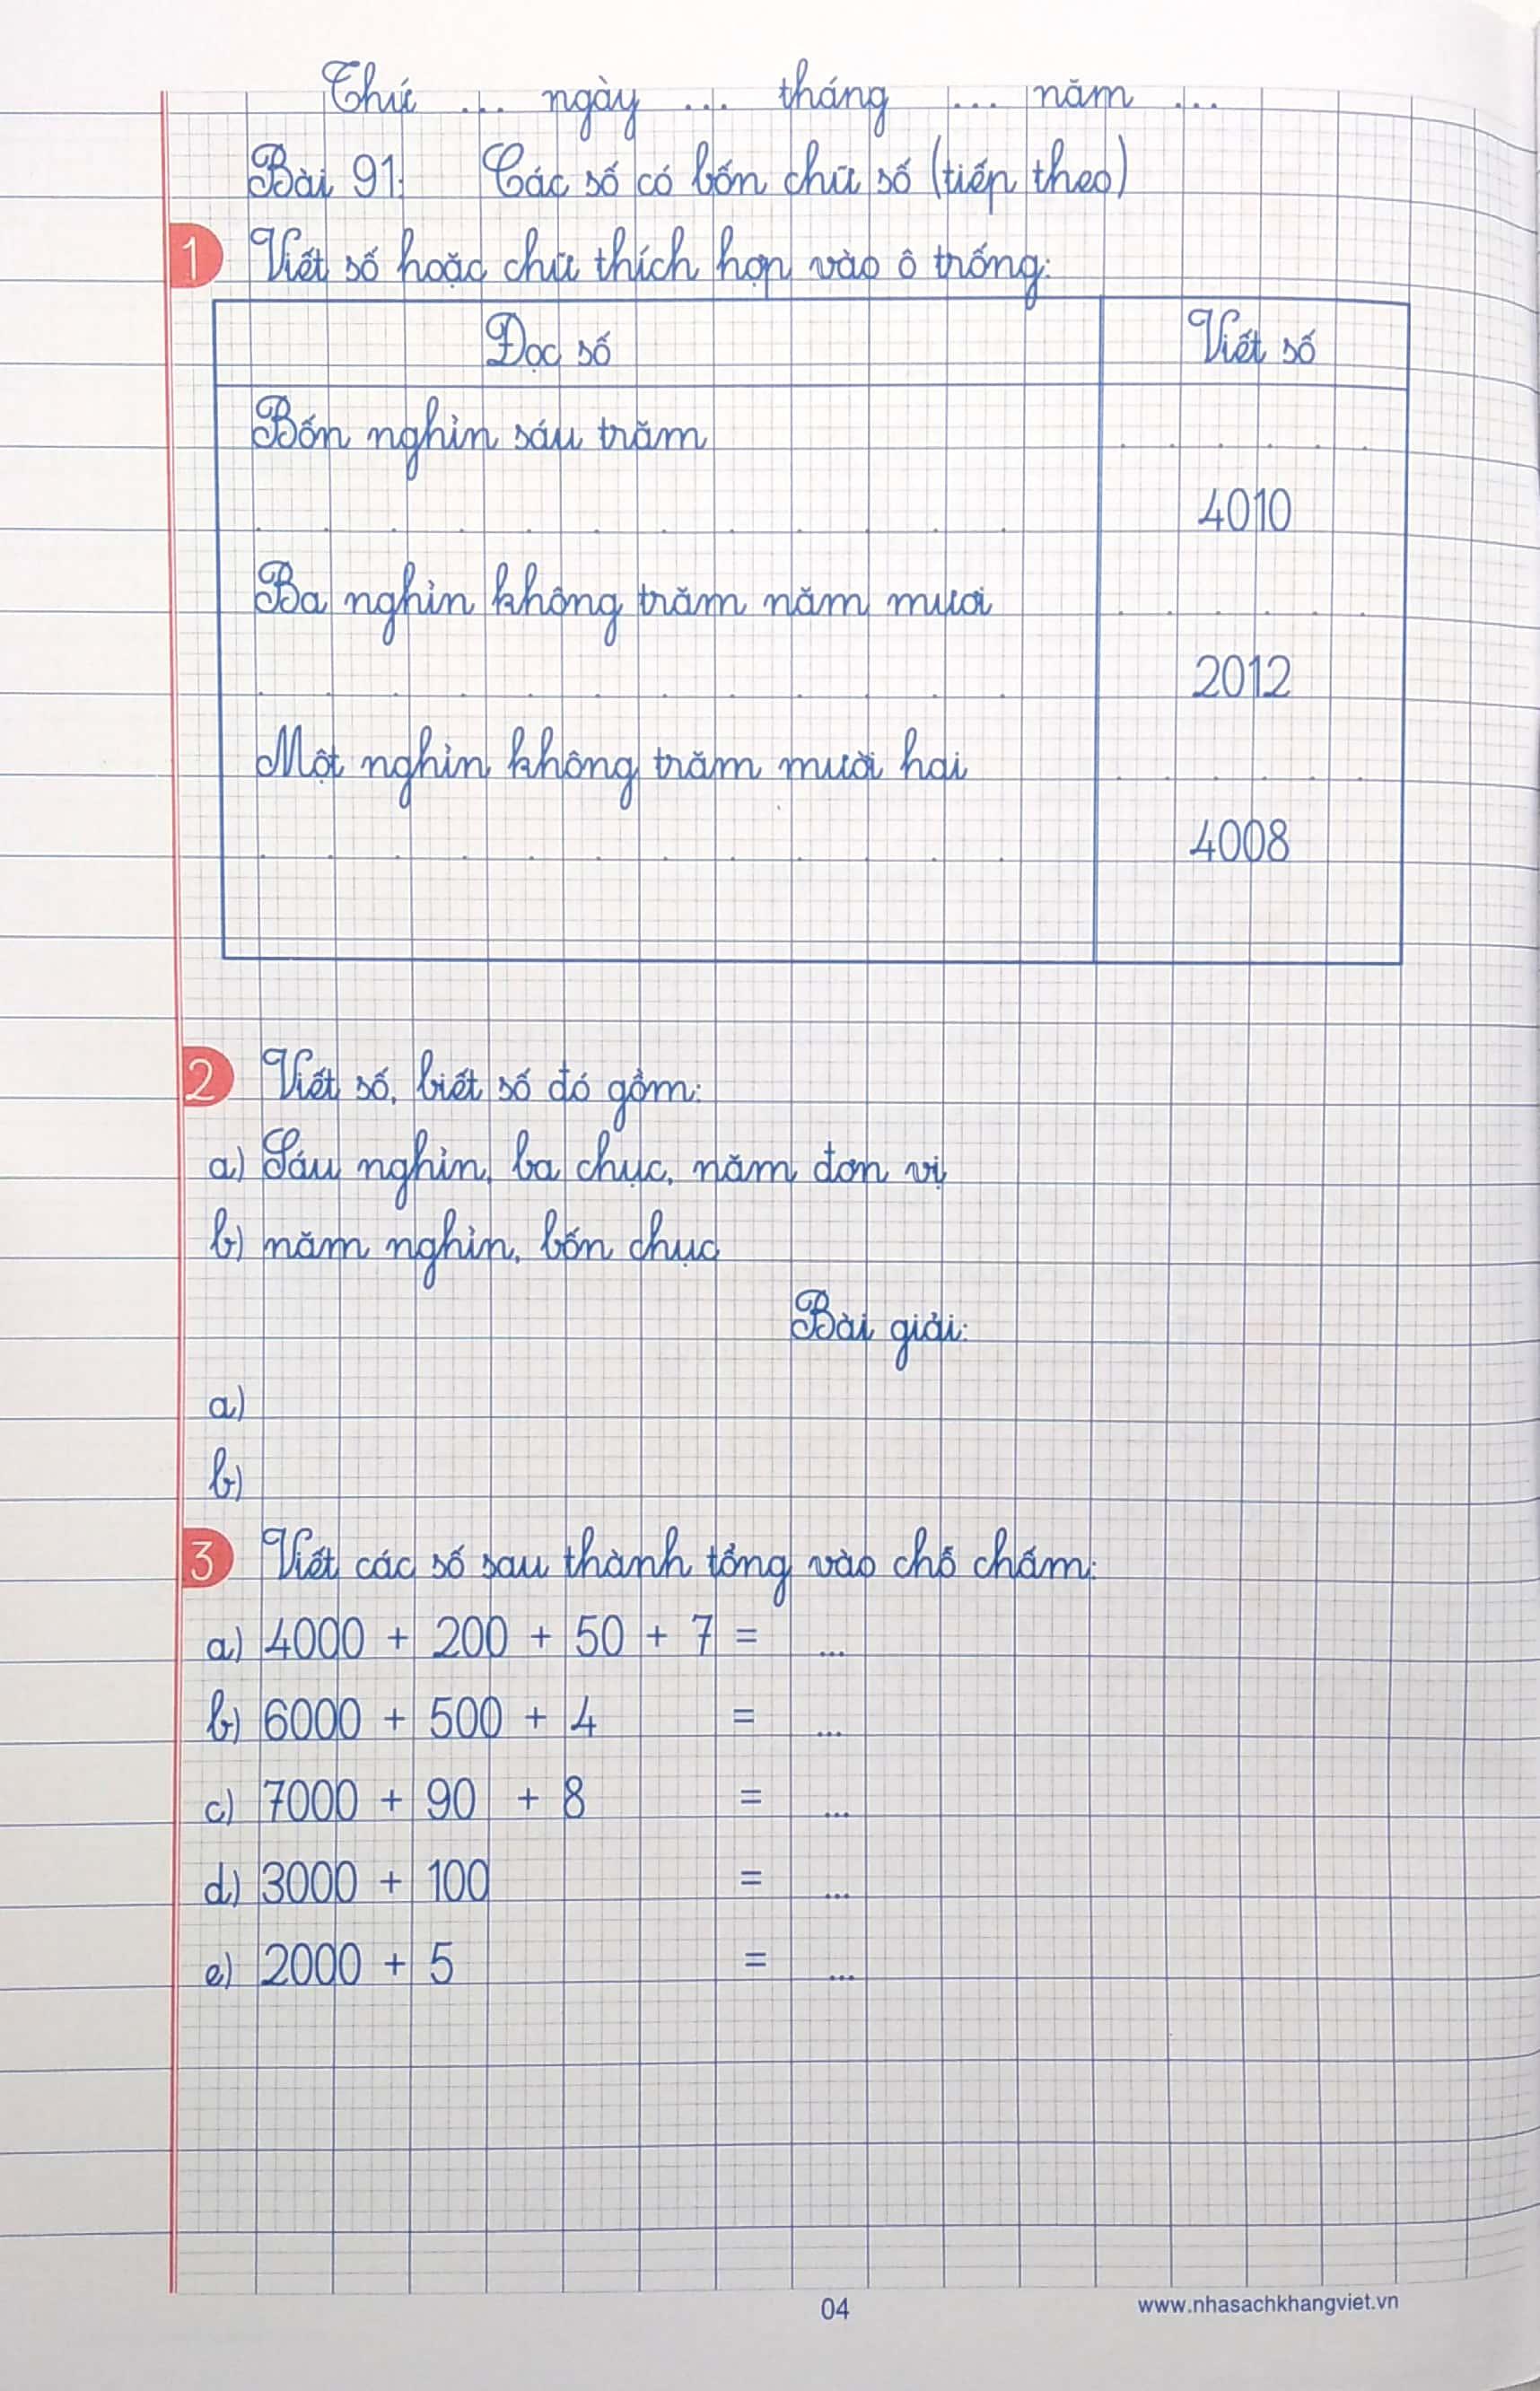 Thứ ... ngày ... tháng ... năm ...
Bài 91: Các số có bốn chữ số (tiếp theo)
1 Viết số hoặc chữ thích hợp vào ô trống:
Đọc số Viết số
Bốn nghìn sáu trăm . . . . . .
. . . . . . . . . . . . 4010
Ba nghìn không trăm năm mươi . . . . . .
. . . . . . . . . . . . 2012
Một nghìn không trăm mười hai . . . . . .
. . . . . . . . . . . . 4008
2 Viết số, biết số đó gồm:
a) Sáu nghìn, ba chục, năm đơn vị
b) năm nghìn, bốn chục
Bài giải:
a)
b)
3 Viết các số sau thành tổng vào chỗ chấm:
a) 4000 + 200 + 50 + 7 = ...
b) 6000 + 500 + 4 = ...
c) 7000 + 90 + 8 = ...
d) 3000 + 100 = ...
e) 2000 + 5 = ...
04 www.nhasachkhangviet.vn